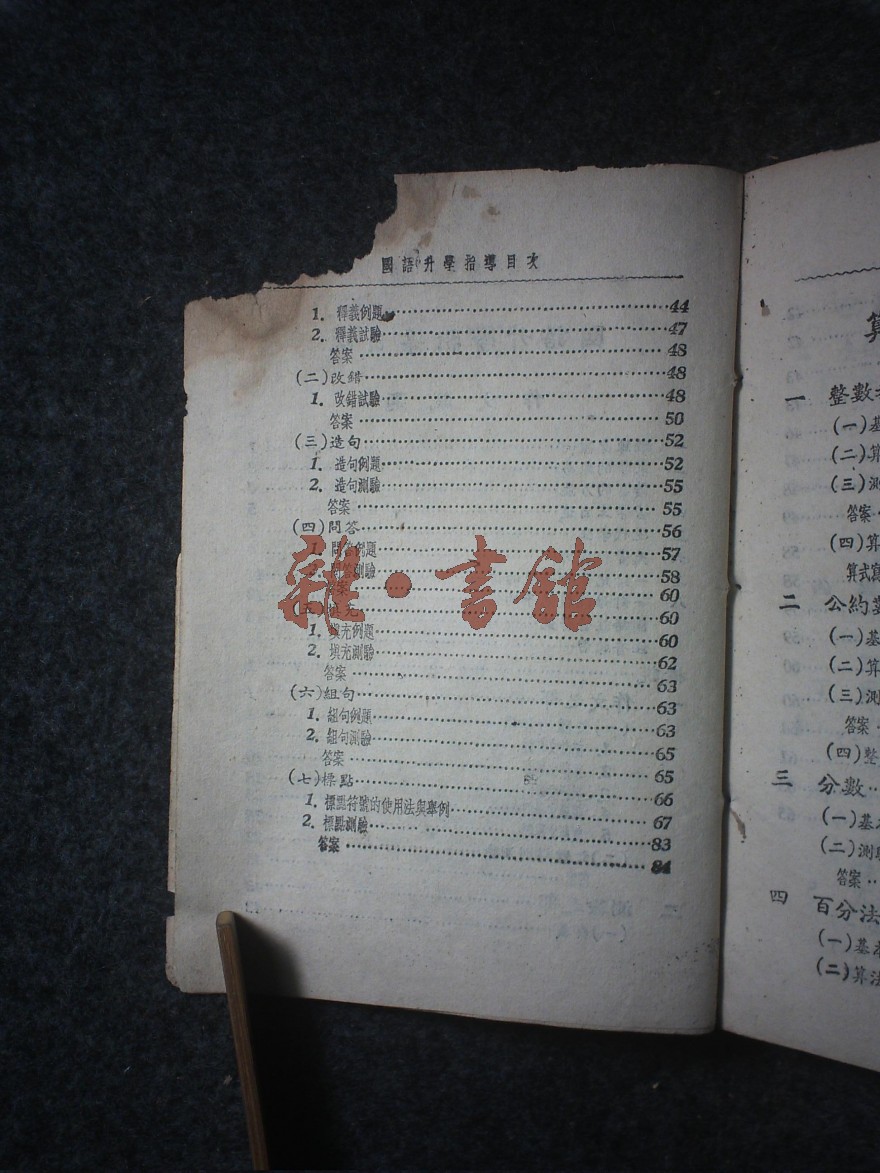 國語升學指導目次
1. 釋義例題……44
2. 釋義試驗……47
答案……48
(二)改錯……48
1. 改錯試驗……48
答案……50
(三)造句……52
1. 造句例題……52
2. 造句測驗……55
答案……55
(四)問答……56
1. 問答例題……57
2. 問答測驗……58
答案……60
(五)填充……60
1. 填充例題……60
2. 填充測驗……62
答案……63
(六)組句……63
1. 組句例題……63
2. 組句測驗……65
答案……65
(七)標點……66
1. 標點符號的使用法與舉例……67
2. 標點測驗……83
答案……84
雜·書館
算
一 整數
(一)基
(二)算
(三)測
答案
(四)算
算式
二 公約
(一)基
(二)算
(三)測
答案
(四)整
三 分數
(一)基本
(二)測驗
答案
四 百分法
(一)基本
(二)算法